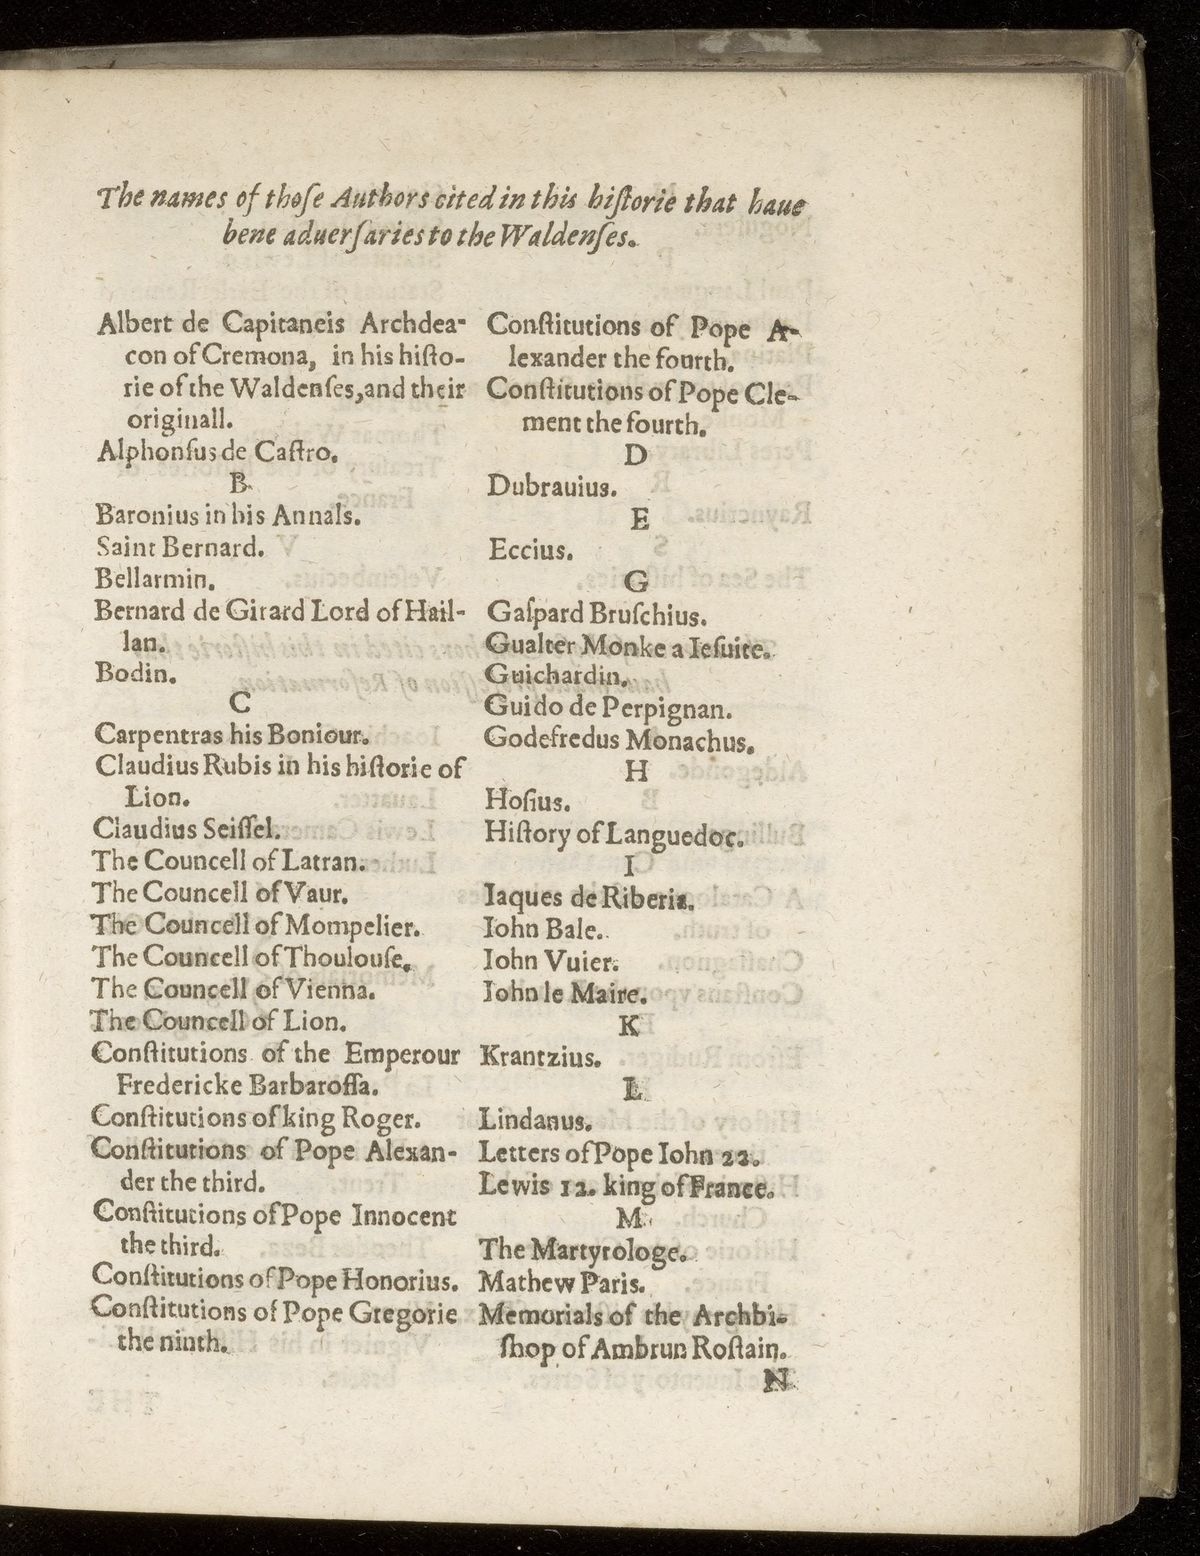 The names of thoſe Authors cited in this hiſtorie that haue
bene aduerſaries to the Waldenſes.
Albert de Capitaneis Archdea-
con of Cremona, in his hiſto-
rie of the Waldenſes, and their
originall.
Alphonſus de Caſtro.
B
Baronius in his Annals.
Saint Bernard.
Bellarmin.
Bernard de Girard Lord of Hail-
lan.
Bodin.
C
Carpentras his Boniour.
Claudius Rubis in his hiſtorie of
Lion.
Claudius Seiſſel.
The Councell of Latran.
The Councell of Vaur.
The Councell of Mompelier.
The Councell of Thoulouſe.
The Councell of Vienna.
The Councell of Lion.
Conſtitutions of the Emperour
Fredericke Barbaroſſa.
Conſtitutions of king Roger.
Conſtitutions of Pope Alexan-
der the third.
Conſtitutions of Pope Innocent
the third.
Conſtitutions of Pope Honorius.
Conſtitutions of Pope Gregorie
the ninth.
Conſtitutions of Pope A-
lexander the fourth.
Conſtitutions of Pope Cle-
ment the fourth.
D
Dubrauius.
E
Eccius.
G
Gaſpard Bruſchius.
Gualter Monke a Ieſuite.
Guichardin.
Guido de Perpignan.
Godefredus Monachus.
H
Hoſius.
Hiſtory of Languedoc.
I
Iaques de Riberia.
Iohn Bale.
Iohn Vuier.
Iohn le Maire.
K
Krantzius.
L
Lindanus.
Letters of Pope Iohn 22.
Lewis 12. king of France.
M
The Martyrologe.
Mathew Paris.
Memorials of the Archbi-
ſhop of Ambrun Roſtain.
N